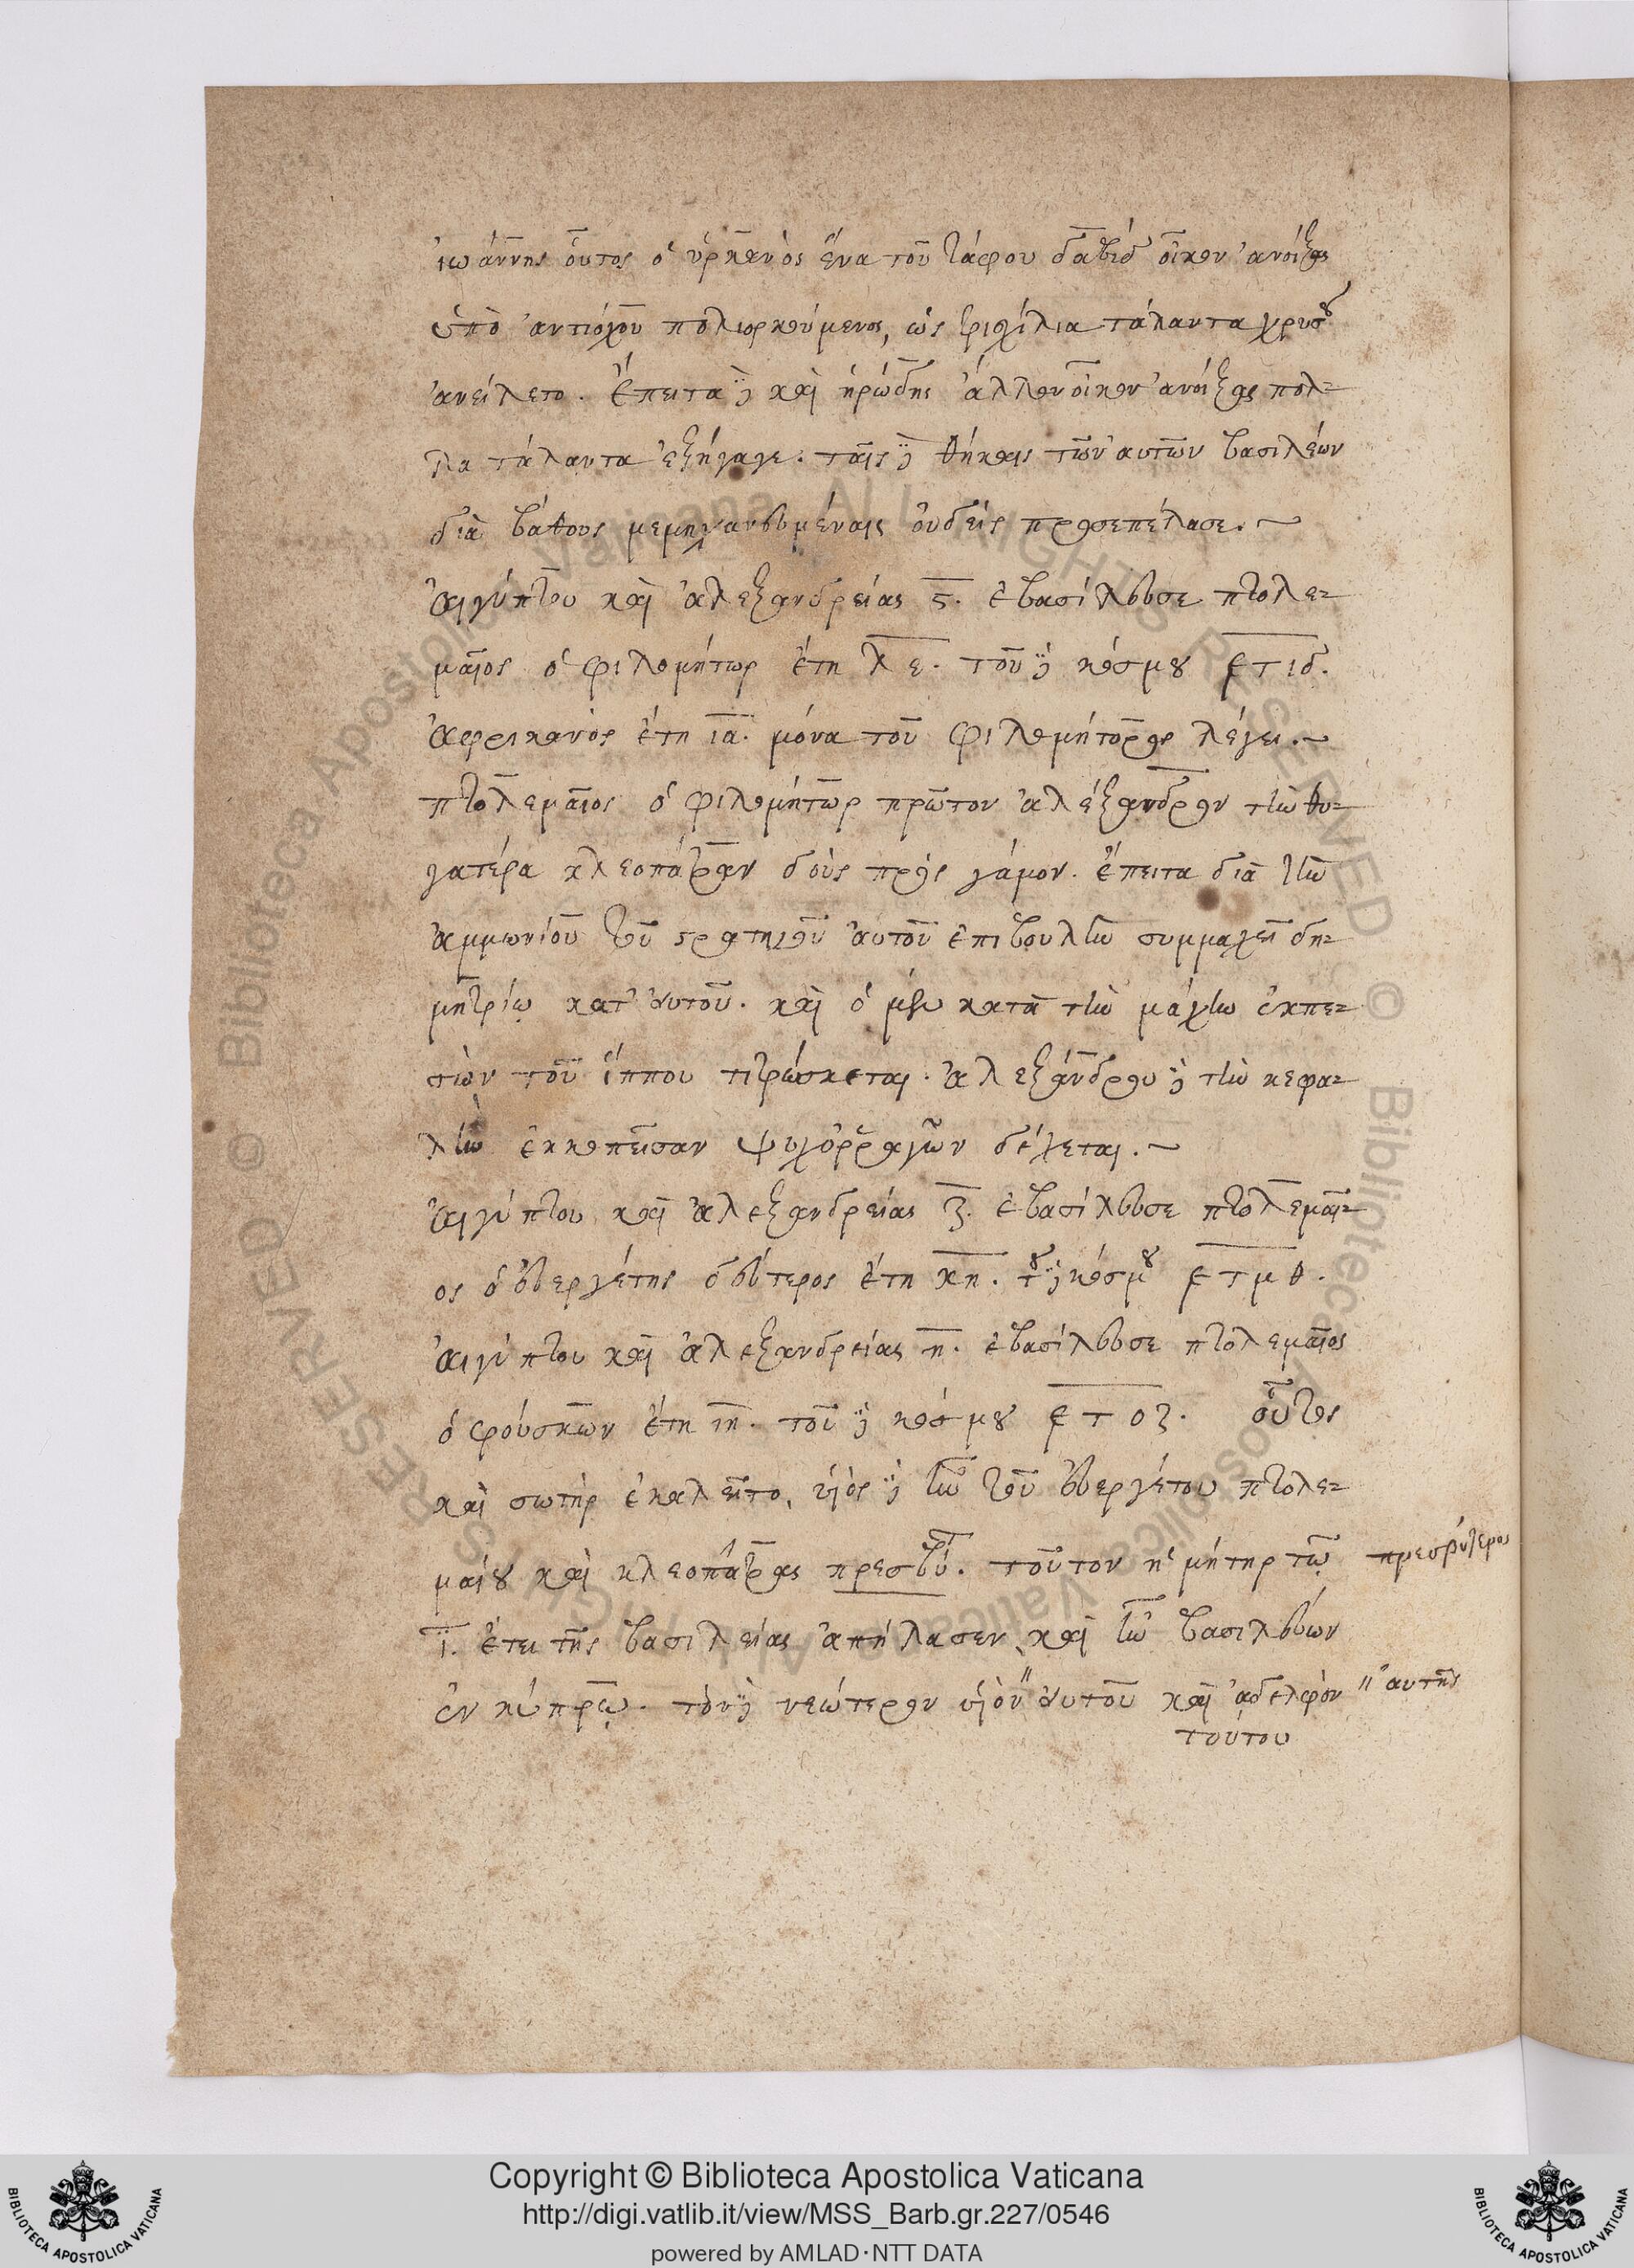 ἰωάννης οὗτος ὁ ὑρκανὸς ἕνα τοῦ τάφου δαβὶδ οἶκον ἀνοίξας
ὑπὸ ἀντιόχου πολιορκούμενος, ὡς τρισχίλια τάλαντα χρυσοῦ
ἀνείλετο. ἔπειτα δὲ καὶ ἡρώδης ἄλλον οἶκον ἀνοίξας πολ-
λα τάλαντα ἐξήγαγε. ταῖς δὲ θήκαις τῶν αὐτῶν βασιλέων
διὰ βάθους μεμηχανευμέναις οὐδεὶς προσεπέλασε.~
αἰγύπτου καὶ ἀλεξανδρείας ϛ. ἐβασίλευσε πτολε-
μαῖος ὁ φιλομήτωρ ἔτη λε. τοῦ δὲ κόσμου ετιδ.
ἀφρικανὸς ἔτη ια. μόνα τοῦ φιλομήτορος λέγει.~
πτολεμαῖος ὁ φιλομήτωρ πρῶτον ἀλέξανδρον τὴν θυ-
γατέρα κλεοπάτραν δοὺς πρὸς γάμον. ἔπειτα διὰ τὴν
ἀμμωνίου τοῦ στρατηγοῦ αὐτοῦ ἐπιβουλὴν συμμαχεῖ δη-
μητρίῳ κατ' αὐτοῦ. καὶ ὁ μὲν κατὰ τὴν μάχην ἐκπε-
σὼν τοῦ ἵππου τιτρώσκεται. ἀλεξάνδρου δὲ τὴν κεφα-
λὴν ἐκκοπεῖσαν ψυχορραγῶν δέχεται.~
αἰγύπτου καὶ ἀλεξανδρείας ζ. ἐβασίλευσε πτολεμαῖ-
ος ὁ εὐεργέτης δεύτερος ἔτη κη. τοῦ δὲ κόσμου ετμθ.
αἰγύπτου καὶ ἀλεξανδρείας η. ἐβασίλευσε πτολεμαῖος
ὁ φούσκων ἔτη ιη. τοῦ δὲ κόσμου ετοζ. οὗτος
καὶ σωτὴρ ἐκαλεῖτο, υἱὸς δὲ ἦν τοῦ εὐεργέτου πτολε-
μαίου καὶ κλεοπάτρας πρεσβύτ. τοῦτον ἡ μήτηρ τῷ πρεσβύτερος
ι. ἔτει τῆς βασιλείας ἀπήλασεν, καὶ ἦν βασιλεύων
ἐν κύπρῳ. τὸν δὲ νεώτερον υἱὸν" αὐτοῦ καὶ ἀδελφὸν " αὐτῆς
τούτου
Copyright © Biblioteca Apostolica Vaticana
http://digi.vatlib.it/view/MSS_Barb.gr.227/0546
powered by AMLAD·NTT DATA